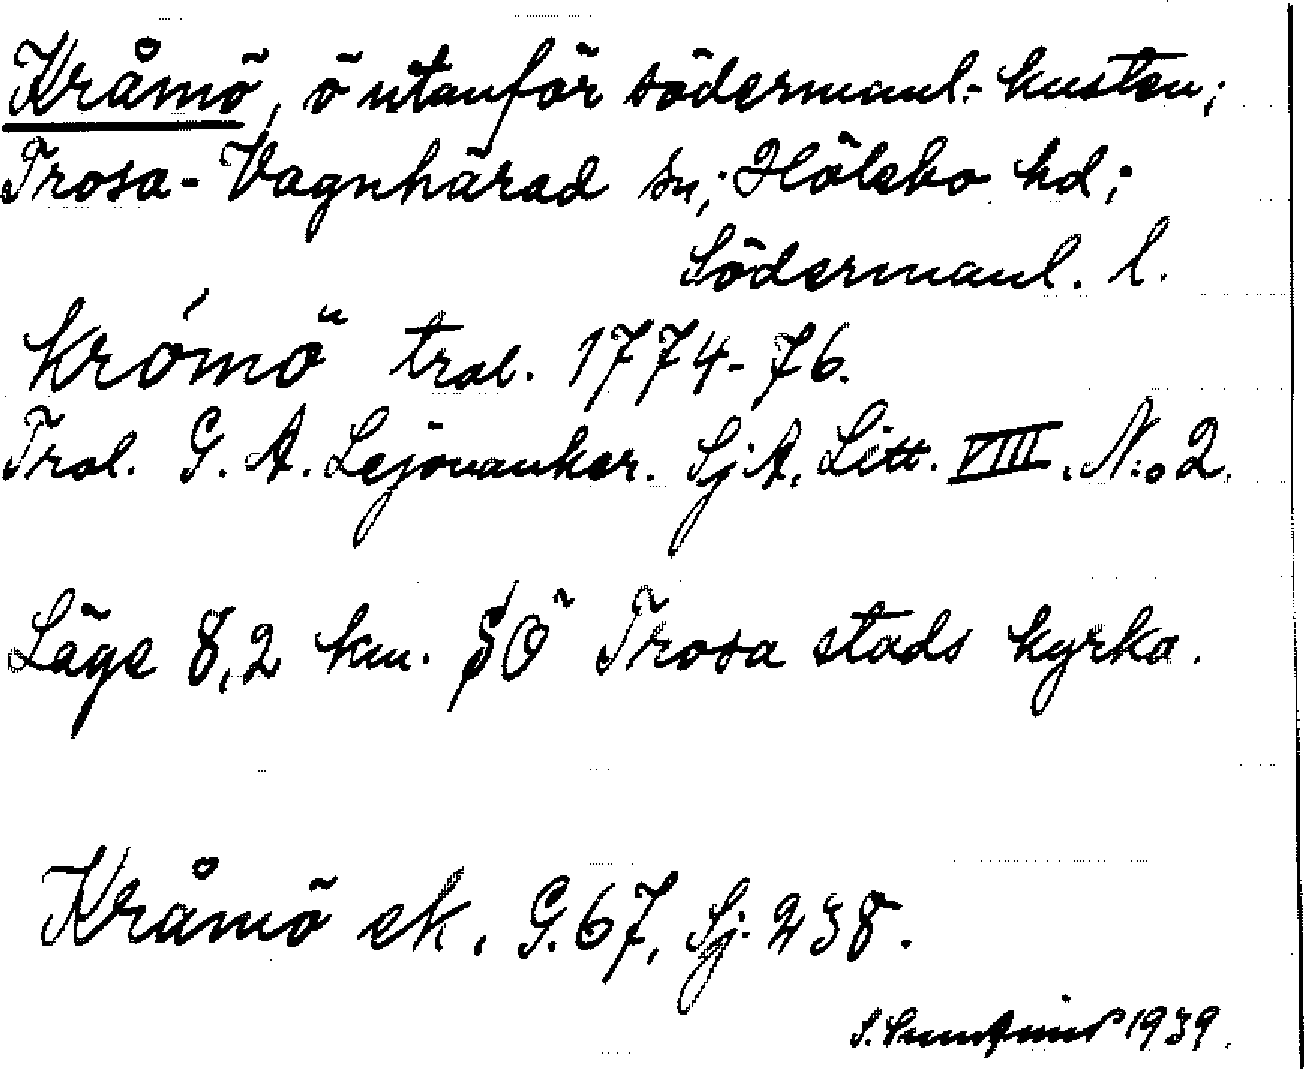 Kråmö, ö utanför södermanl.-kusten;
Trosa-Vagnhärad sn; Hölebo hd;
Södermanl. l.
krómö" trol. 1774-76.
Trol. G. A. Lejonanker. Sj.A. Litt. VIII. N:o 2.
Läge 8,2 km. SO Trosa stads kyrka.
Kråmö ek. G. 67, Sj. 238.
S. 1939.